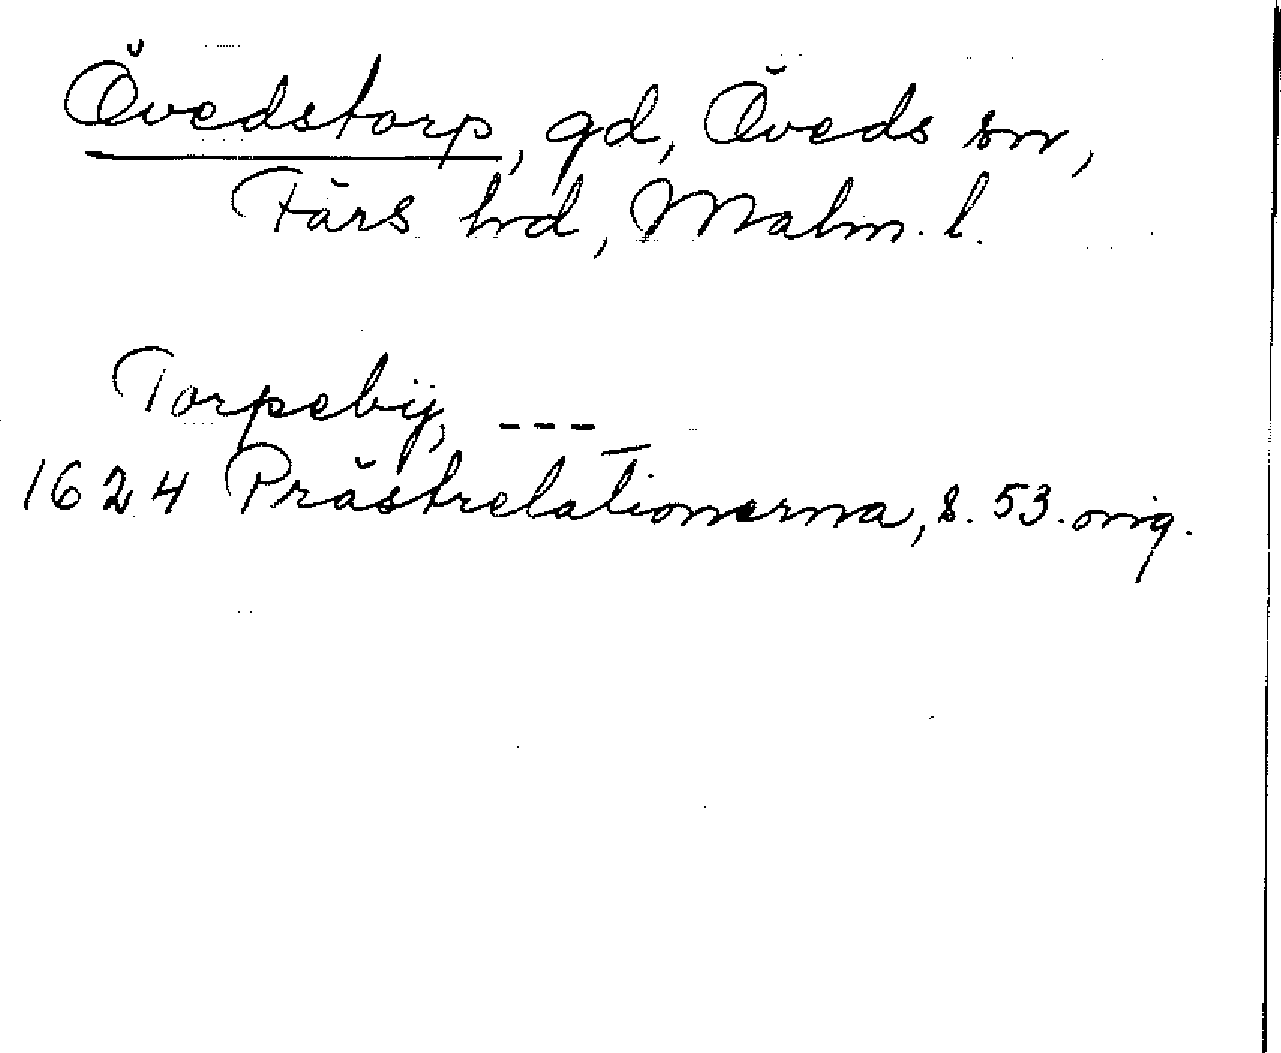 Övedstorp, gd, Öveds sn,
Färs hrd, Malm. l.
Torpebÿ, ---
1624 Prästrelationerna, s. 53. orig.